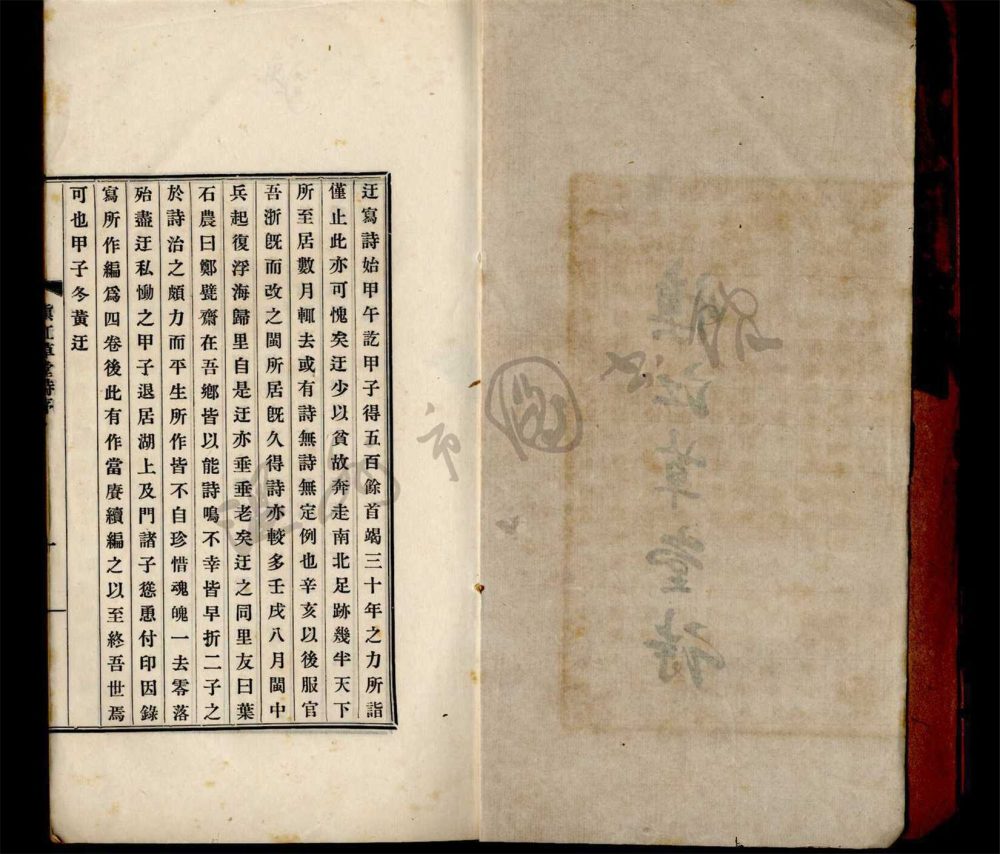 迂寫詩始甲午訖甲子得五百餘首竭三十年之力所詣
僅止此亦可愧矣迂少以貧故奔走南北足跡幾半天下
所至居數月輒去或有詩無詩無定例也辛亥以後服官
吾浙旣而改之閩所居旣久得詩亦較多壬戌八月閩中
兵起復浮海歸里自是迂亦垂垂老矣迂之同里友曰葉
石農曰鄭甓齋在吾鄉皆以能詩鳴不幸皆早折二子之
於詩治之頗力而平生所作皆不自珍惜魂魄一去零落
殆盡迂私慟之甲子退居湖上及門諸子慫恿付印因錄
寫所作編爲四卷後此有作當賡續編之以至終吾世焉
可也甲子冬黃迂
草堂詩序
一